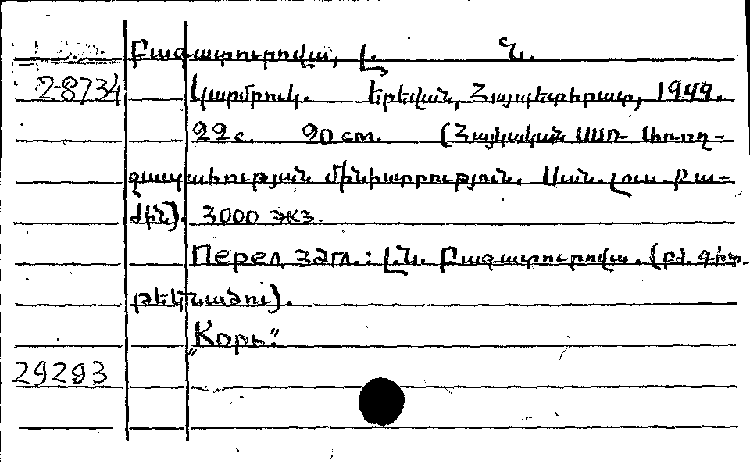 Բագատուրովա, Լ. Ն.
28734 Կարմրուկ. Երևան, Հայպետհրատ, 1949.
22 с. 20 cm. (Հայկական ՍՍՌ Առող-
ջապահության մինիստրություն. Սան. լուս. բա-
ժին). 3000 экз.
Перед загл.: Լ.Ն. Բագատուրովա. (բժ. գիտ.
թեկնածու).
„Корь“
29293